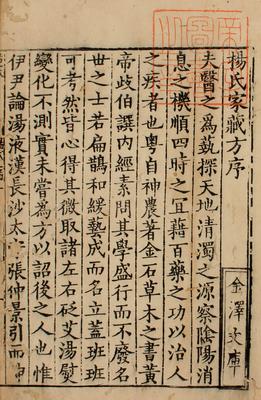 楊氏家藏方序
金澤文庫
夫醫之爲藝探天地清濁之源察隂陽消
息之機順四時之宜藉百藥之功以治人
之疾者也粤自神農著金石草木之書黃
帝歧伯譔内經素問其學盛行而不廢名
世之士若扁鵲和緩藝成而名立蓋班班
可考然皆心得其微取諸左右砭艾湯熨
變化不測實未嘗爲方以詔後之人也惟
伊尹論湯液漢長沙太張仲景引而